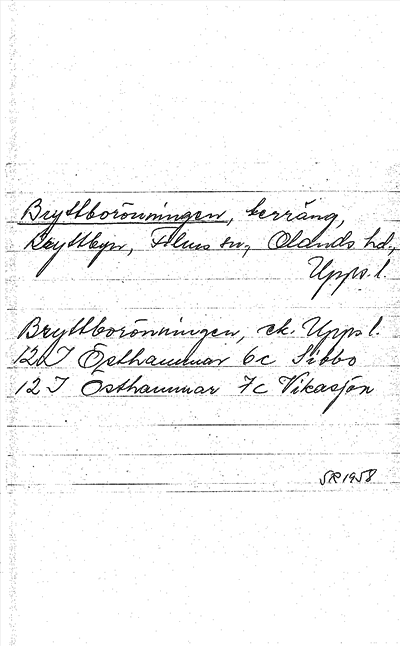 Bryttborönningen, terräng,
Bryttbyn, Films sn, Olands hd,
Upps. l.
Bryttborönningen, ek. Upps l.
12 I Östhammar 6c Sibbo
12 I Östhammar 7c Vikasjön
SR 1958